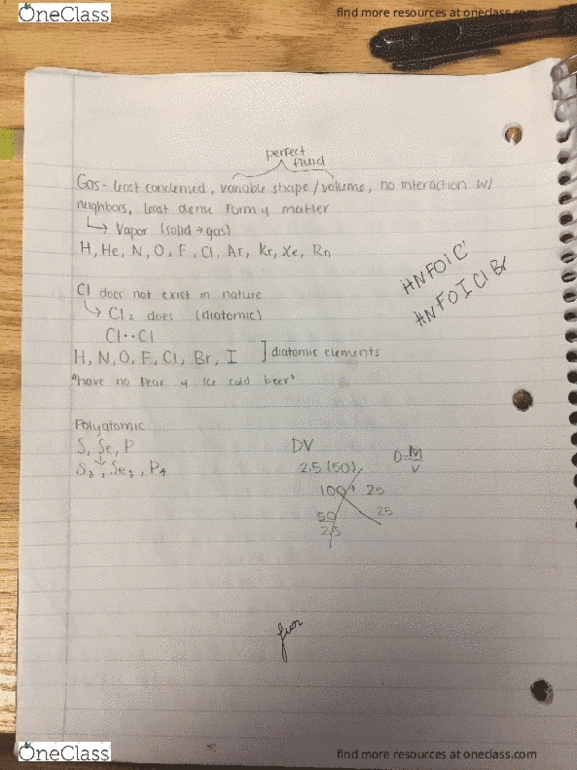 OneClass
find more resources at oneclass.com
perfect
fluid
Gas- least condensed, variable shape/volume, no interaction w/
neighbors, least dense form of matter
↳ Vapor (solid → gas)
H, He, N, O, F, Cl, Ar, Kr, Xe, Rn
HNFOIC'
HNFOIClBr
Cl does not exist in nature
↳ Cl₂ does (diatomic)
Cl··Cl
H, N, O, F, Cl, Br, I ] diatomic elements
"have no fear of ice cold beer"
Polyatomic
S, Se, P
Se₂, P₄
DV
2.5 (50)
D=M/V
100 25
50 25
25
fun
OneClass
find more resources at oneclass.com